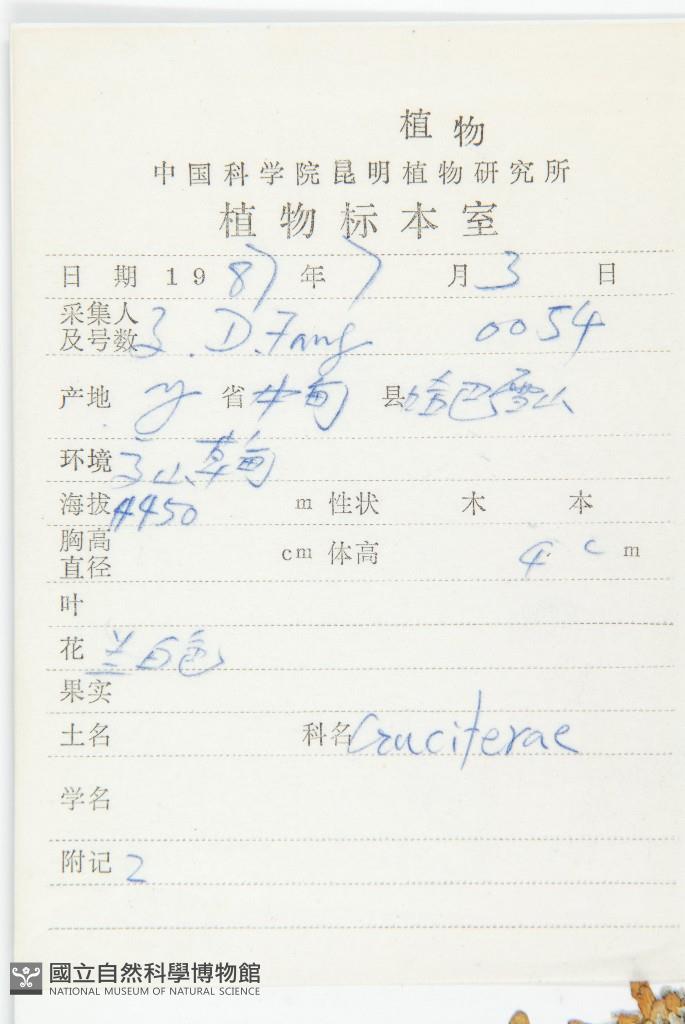 植物
中国科学院昆明植物研究所
植物标本室
日期 1987年 7月 3日
采集人
及号数 . D. Fang 0054
产地 省 中甸 县 哈巴雪山
环境 高山草甸
海拔 4450 m 性状 木 本
胸高
直径 cm 体高 4 cm
叶
花 兰白色
果实
土名 科名 Cruciferae
学名
附记 2
國立自然科學博物館
NATIONAL MUSEUM OF NATURAL SCIENCE